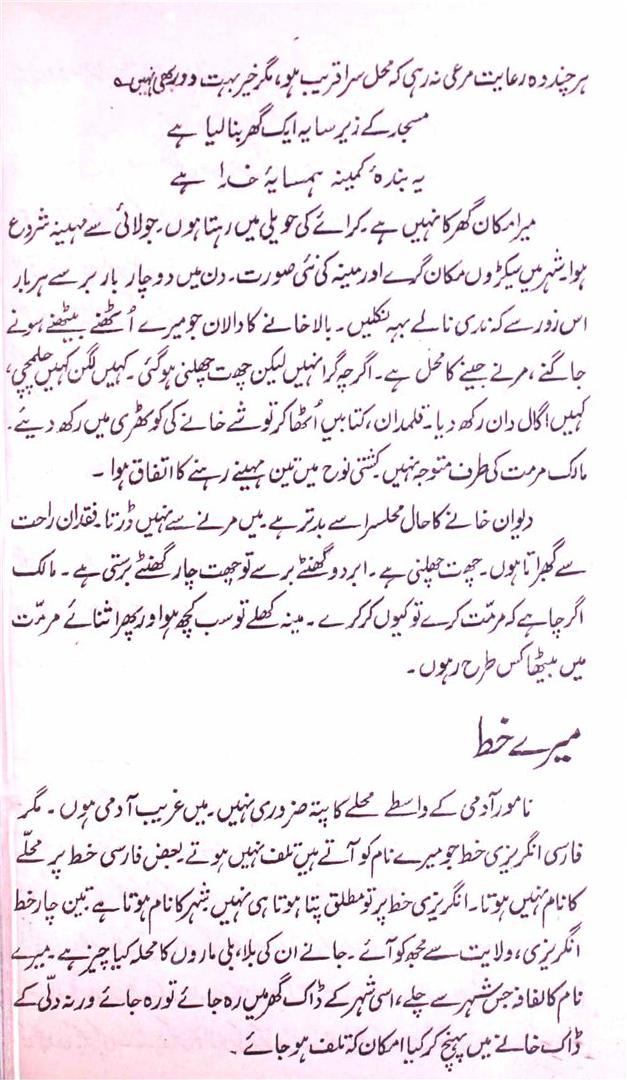 ہر چند وہ رعایت مرعی نہ رہی کہ محل سرا قریب ہو، مگر خیر بہت دور بھی نہیں ؎
مسجد کے زیر سایہ ایک گھر بنا لیا ہے
یہ بندۂ کمینہ ہمسایۂ خدا ہے
میرا مکان گھر کا نہیں ہے۔ کرائے کی حویلی میں رہتا ہوں۔ جولائی سے مہینہ شروع
ہوا۔ شہر میں سیکڑوں مکان گرے اور مینہ کی نئی صورت۔ دن میں دو چار بار برسے ہر بار
اس زور سے کہ ندی نالے بہہ نکلیں۔ بالا خانے کا دالان جو میرے اُٹھنے بیٹھنے ہونے
جاگنے، مرنے جینے کا محل ہے۔ اگرچہ گرا نہیں لیکن چھت چھلنی ہو گئی۔ کہیں لگن کہیں چلمچی،
کہیں اگال دان رکھ دیا۔ قلمدان، کتابیں اُٹھا کر توشے خانے کی کوٹھری میں رکھ دیئے۔
مالک مرمت کی طرف متوجہ نہیں۔ کشتی نوح میں تین مہینے رہنے کا اتفاق ہوا ۔
دیوان خانے کا حال محلسرا سے بدتر ہے۔ میں مرنے سے نہیں ڈرتا۔ فقدان راحت
سے گھبراتا ہوں۔ چھت چھلنی ہے۔ ابر دو گھنٹے برسے تو چھت چار گھنٹے برستی ہے۔ مالک
اگر چاہے کہ مرمّت کرے تو کیوں کر کرے ۔ مینہ کھلے تو سب کچھ ہو اور پھر اثنائے مرمّت
میں بیٹھا کس طرح رہوں ۔
میرے خط
نامور آدمی کے واسطے محلے کا پتہ ضروری نہیں۔ میں غریب آدمی ہوں ۔ مگر
فارسی انگریزی خط جو میرے نام کو آتے ہیں تلف نہیں ہوتے۔ بعض فارسی خط پر محلّے
کا نام نہیں ہوتا۔ انگریزی خط پر تو مطلق پتا ہوتا ہی نہیں شہر کا نام ہوتا ہے تین چار خط
انگریزی، ولایت سے مجھ کو آئے ۔ جانے ان کی بلا، بلی ماروں کا محلہ کیا چیز ہے ۔ میرے
نام کا لفافہ جس شہر سے چلے، اسی شہر کے ڈاک گھر میں رہ جائے تو رہ جائے ورنہ دلّی کے
ڈاک خانے میں پہنچ کر کیا امکان کہ تلف ہو جائے ۔